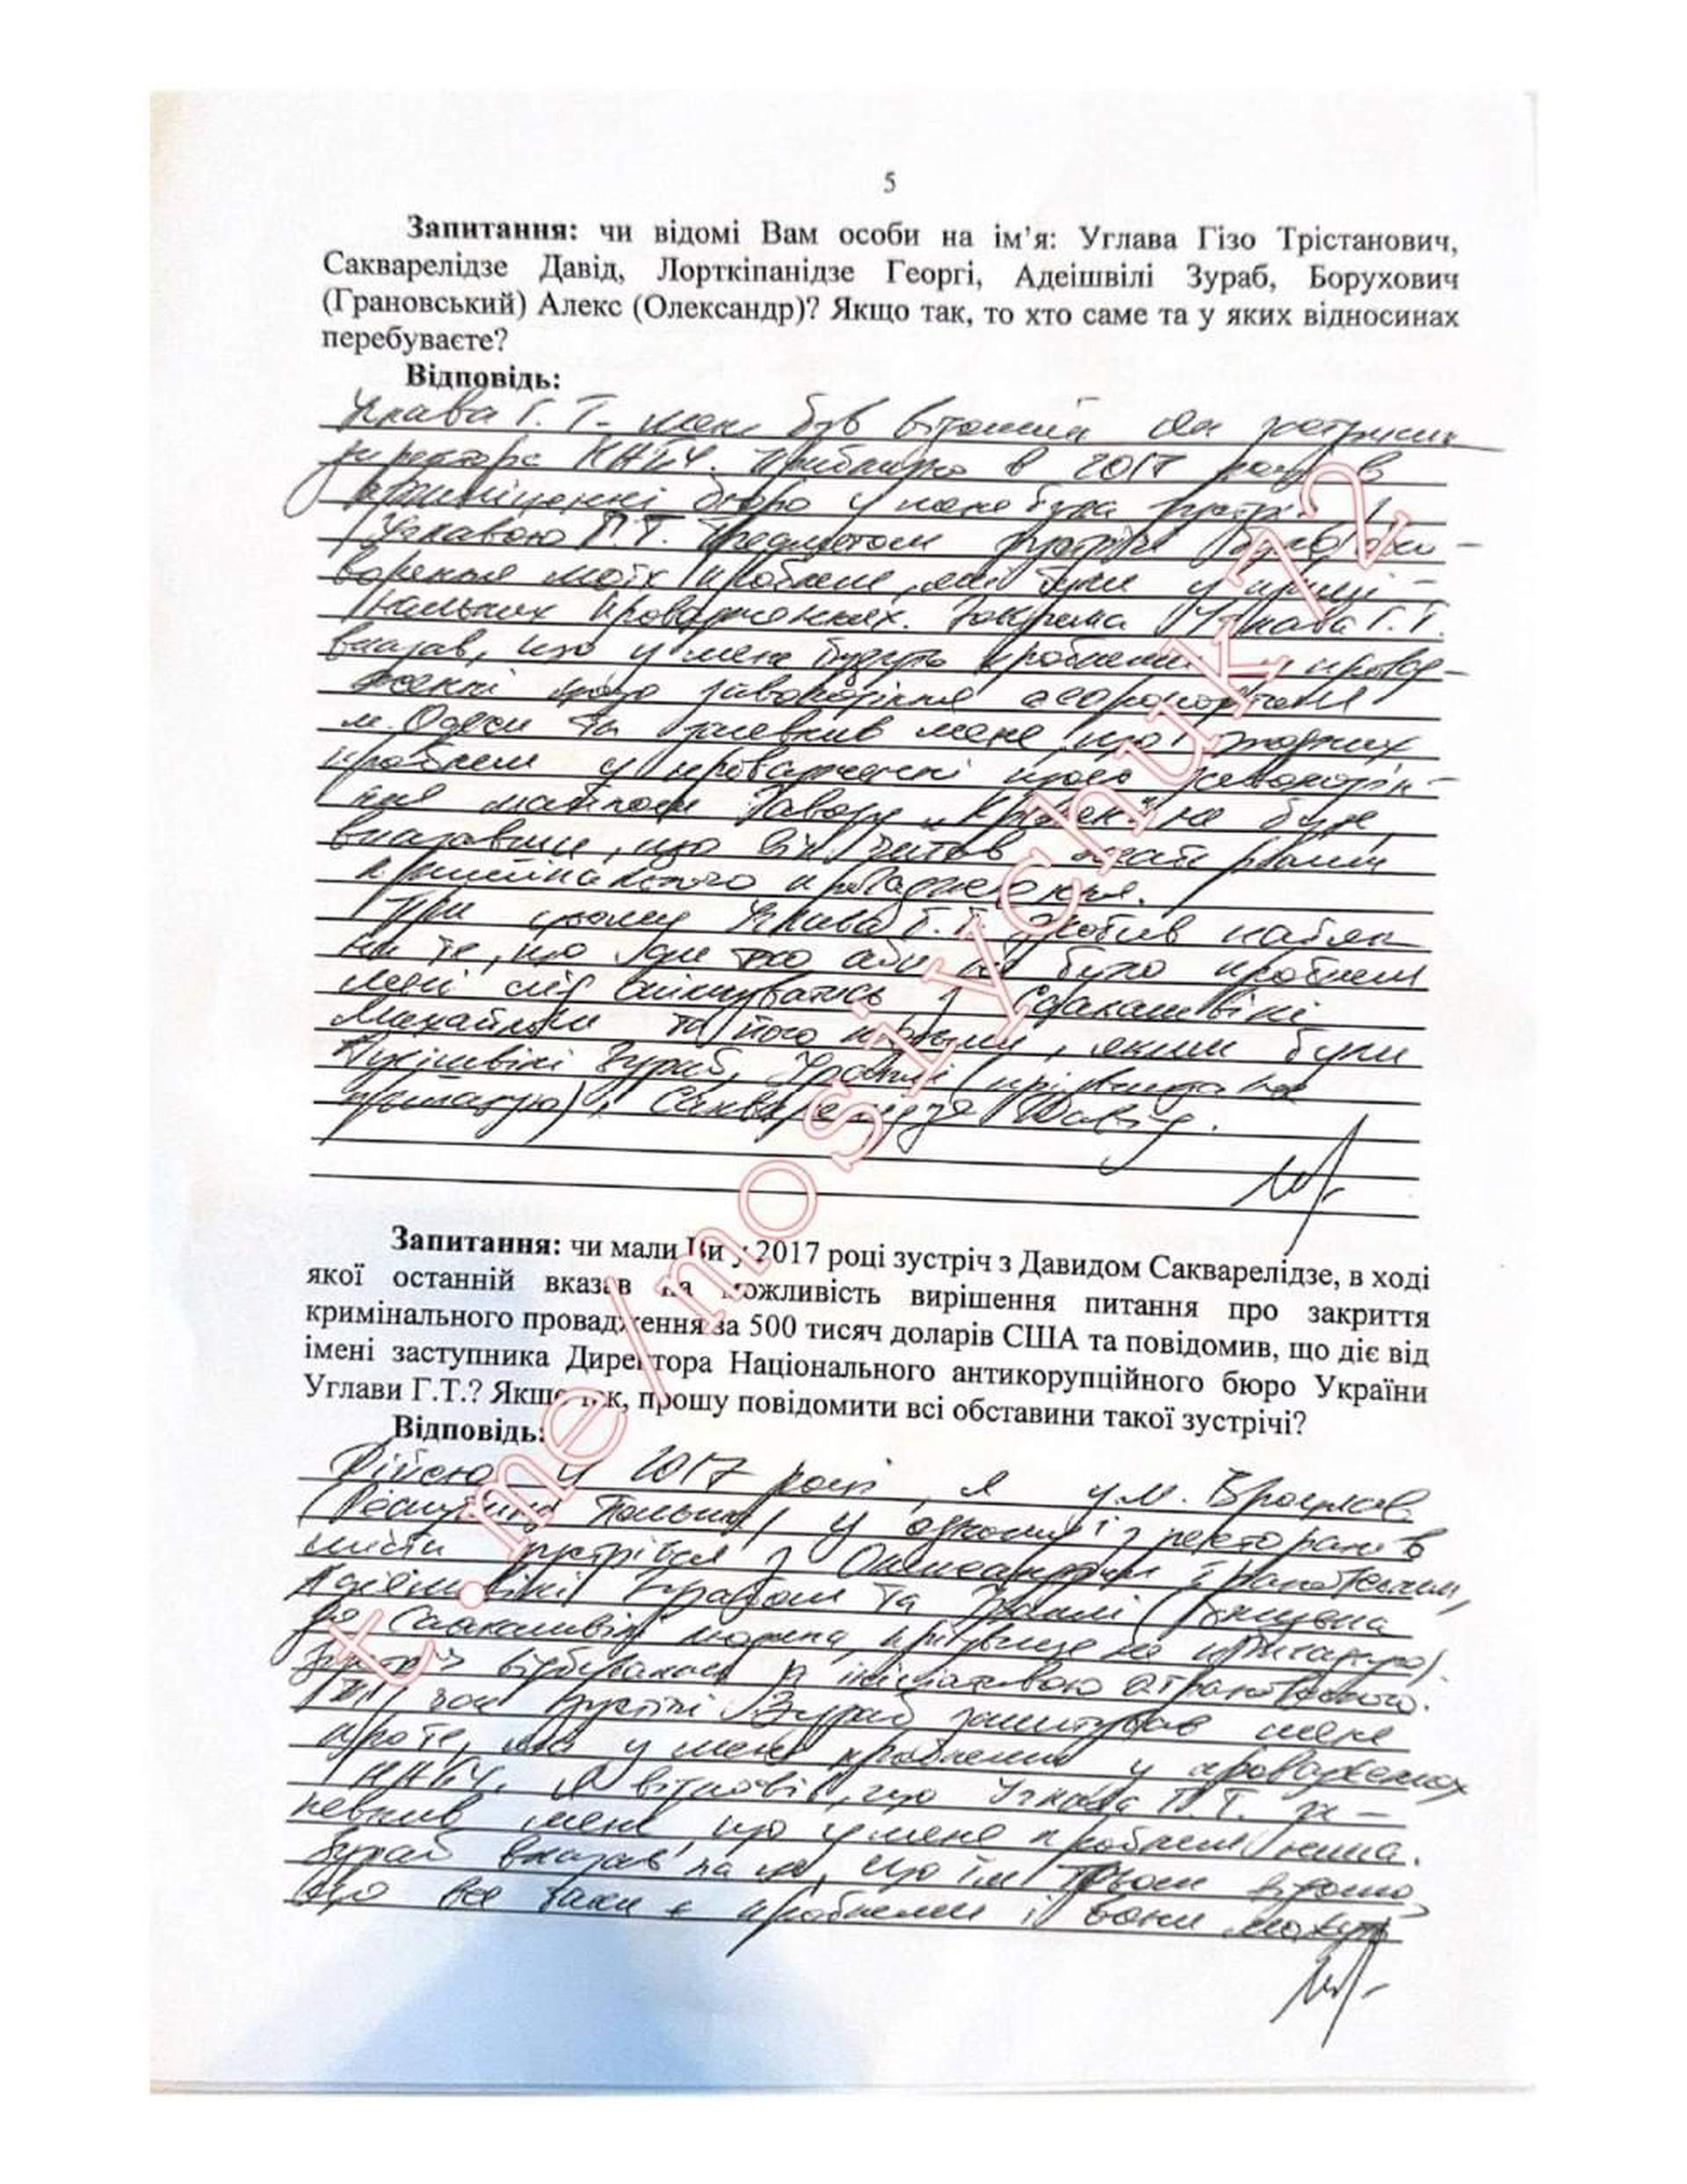 5
Запитання: чи відомі Вам особи на ім’я: Углава Гізо Трістанович,
Сакварелідзе Давід, Лорткіпанідзе Георгі, Адеішвілі Зураб, Борухович
(Грановський) Алекс (Олександр)? Якщо так, то хто саме та у яких відносинах
перебуваєте?
Відповідь:
Углава Г.Т. мені був відомий як заступник
директора НАБУ. Приблизно в 2017 році в
приміщенні бюро у мене була зустріч з
Углавою Г.Т. Предметом зустрічі було обго-
ворення моїх проблем, які були у кримі-
нальних провадженнях. Зокрема Углава Г.Т.
вказав, що у мене будуть проблеми у провад-
женні щодо заволодіння аеропортом
м. Одеси та запевнив мене що жодних
проблем у провадженні щодо заволодін-
ня майном Заводу „Краян" не буде,
вказавши, що він читав
кримінального провадження.
При цьому Углава Г.Т. зробив натяк
на те, що для того аби не було проблем
мені слід спілкуватись з Саакашвілі
Михайлом та його людьми, якими були
Адеішвілі Зураб, (прізвище не
пригадую), Сакварелідзе Давід.
Запитання: чи мали Ви у 2017 році зустріч з Давидом Сакварелідзе, в ході
якої останній вказав на можливість вирішення питання про закриття
кримінального провадження за 500 тисяч доларів США та повідомив, що діє від
імені заступника Директора Національного антикорупційного бюро України
Углави Г.Т.? Якщо так, прошу повідомити всі обставини такої зустрічі?
Відповідь:
Дійсно у 2017 році, я у м. Вроцлав
(Республіка Польща) у одному із ресторанів
міста зустрівся з Олександром Грановським,
Адеішвілі Зурабом та (
до Саакашвілі людина, прізвище не пригадую).
Зустріч відбувалася з ініціативою Грановського.
Під час зустрічі Зураб запитував мене
про те, які у мене проблеми у провадженнях
НАБУ. Я відповів, що Углава Г.Т. за-
певнив мене що у мене проблем нема.
Зураб вказав на те, що їм відомо,
що все таки є проблеми і вони можуть
t.me/mosiychuk72